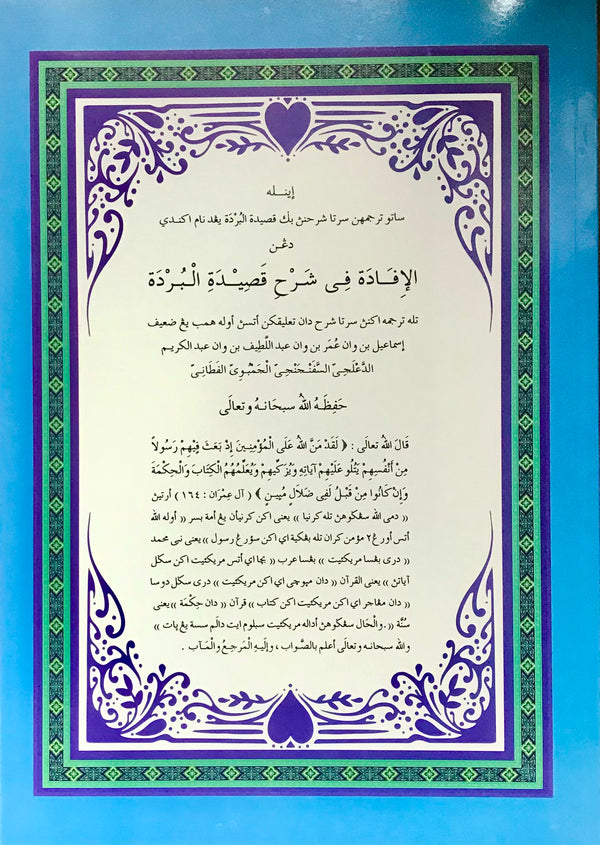 إينـــله
ساتو ترجمهن سرتا شرحنڽ بݢي قصيدة البُرْدَة يڠد نام اكندي
دڠــن
الإِفَــادَة فِـي شَـرْحِ قَصِيْـدَةِ الْـبُـرْدَة
تله ترجمه اكنڽ سرتا شرح دان تعليقكن أتسڽ أوله همب يڠ ضعيف
إسماعيل بن وان عُمَر بن وان عبد اللّطيف بن وان عبد الكريم
الفَطَانِـيّ
حَفِظَـهُ اللهُ سبحانـهُ وتعالَى
قَالَ اللهُ تعالَى : ﴿ لَقَدْ مَنَّ اللهُ عَلَى الْمُؤْمِنِـيْنَ إِذْ بَعَثَ فِيْهِمْ رَسُولاً
مِنْ أَنْفُسِهِمْ يَتْلُو عَلَيْهِمْ آيَاتِهِ وَيُزَكِّيهِمْ وَيُعَلِّمُهُمُ الْكِتَابَ وَالْحِكْمَةَ
وَإِنْ كَانُوا مِنْ قَبْلُ لَفِي ضَلَالٍ مُبِينٍ ﴾ ( آل عِمْرَان : ١٦٤ ) أرتيڽ
(( دمي الله سڠݢوهڽ تله كرنيا )) يعني اكن كرنيأن يڠ أمة بسر (( أوله الله
أتس أورڠ٢ مؤمن كران تله بڠكية اي اكن سؤرڠ رسول )) يعني نبي محمد
(( دري بڠسا مريكئيت )) بڠسا عرب (( بچا اي أتس مريكئيت اكن سكل
آياتڽ )) يعني القرآن (( دان مڽوچي اي اكن مريكئيت )) دري سكل دوسا
(( دان مڠاجر اي اكن مريكئيت اكن كتاب )) قرآن (( دان حِكْمَة )) يعني
سُنَّة (( .والْحَال سڠݢوهڽ أداله مريكئيت سبلوم ايت دالم سسة يڠ ڽات ))
والله سبحانـه وتعالَى أعلم بالصَّواب ، وإلَيهِ الْمَرجِـعُ والْمَـآب .